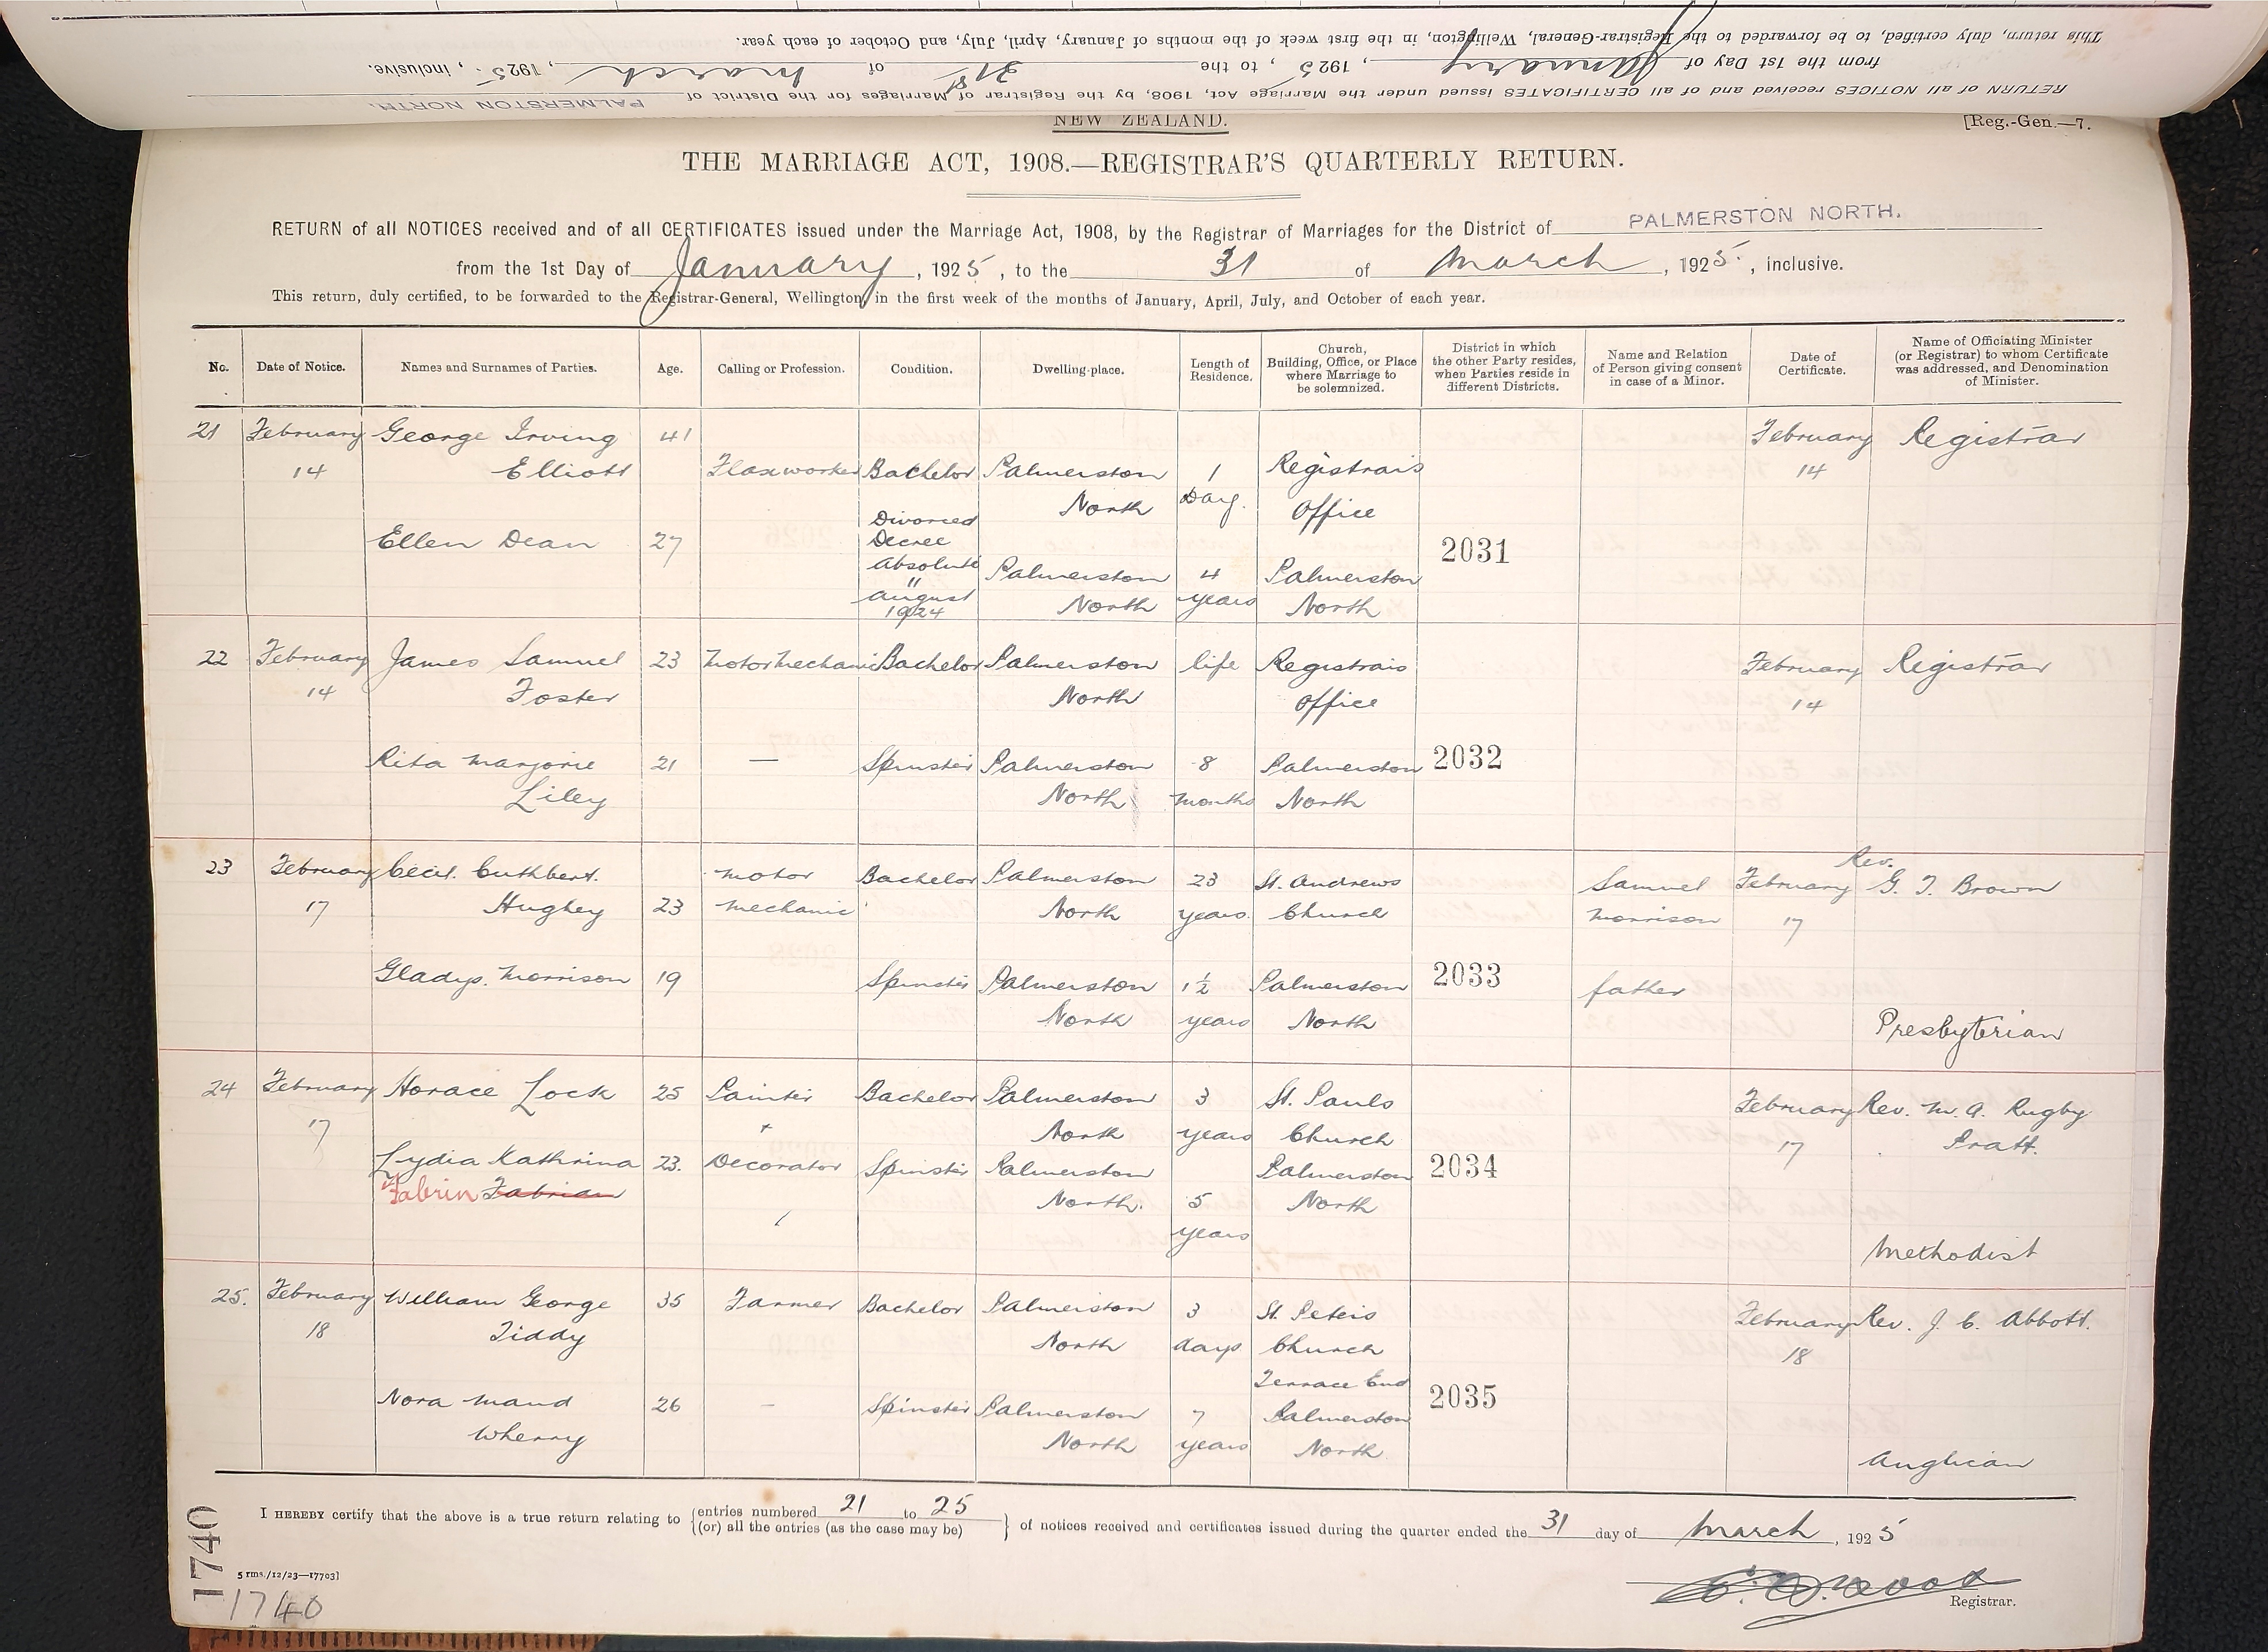 This return, duly certified, to be forwarded to the Registrar-General, Wellington, in the first week of the months of January, April, July, and October of each year.
from the 1st Day of January, 1925, to the 31st of March, 1925, inclusive.
RETURN of all NOTICES received and of all CERTIFICATES issued under the Marriage Act, 1908, by the Registrar of Marriages for the District of PALMERSTON NORTH.
NEW ZEALAND.
[Reg.-Gen.—7.
THE MARRIAGE ACT, 1908.—REGISTRAR'S QUARTERLY RETURN.
RETURN of all NOTICES received and of all CERTIFICATES issued under the Marriage Act, 1908, by the Registrar of Marriages for the District of PALMERSTON NORTH.
from the 1st Day of January, 1925, to the 31 of March, 1925., inclusive.
This return, duly certified, to be forwarded to the Registrar-General, Wellington, in the first week of the months of January, April, July, and October of each year.
No. Date of Notice. Names and Surnames of Parties. Age. Calling or Profession. Condition. Dwelling-place. Length of Residence. Church, Building, Office, or Place where Marriage to be solemnized. District in which the other Party resides, when Parties reside in different Districts. Name and Relation of Person giving consent in case of a Minor. Date of Certificate. Name of Officiating Minister (or Registrar) to whom Certificate was addressed, and Denomination of Minister.
21 February George Irving 41 February Registrar
14 Elliott Flaxworker Bachelor Palmerston 1 Registrar's 14
North Day. Office
Divorced
Ellen Dean 27 Decree 2031
Absolute Palmerston 4 Palmerston
" North years North
August
1924
22 February James Samuel 23 Motor Mechanic Bachelor Palmerston life Registrar's February Registrar
14 Foster North Office 14
Rita Marjorie 21 — Spinster Palmerston 8 Palmerston 2032
Liley North months North
23 February Cecil. Cuthbert. Motor Bachelor Palmerston 23 St. Andrews Samuel February Rev. G. T. Brown
17 Hughey 23 Mechanic North years. Church Morrison 17
Gladys. Morrison 19 Spinster Palmerston 1½ Palmerston 2033 father
North years North Presbyterian
24 February Horace Lock 25 Painter Bachelor Palmerston 3 St. Pauls February Rev. W. A. Rugby
17 + North years Church 17 Pratt.
Lydia Kathrina 23. Decorator Spinster Palmerston Palmerston 2034
Fabrin Fabrian North. 5 North
years
Methodist
25. February William George 35 Farmer Bachelor Palmerston 3 St. Peter's February Rev. J. C. Abbott.
18 Tiddy North days Church 18
Terrace End
Nora Maud 26 - Spinster Palmerston 7 Palmerston 2035
Wherry North years North
Anglican
I HEREBY certify that the above is a true return relating to {entries numbered 21 to 25
{(or) all the entries (as the case may be) } of notices received and certificates issued during the quarter ended the 31 day of March, 1925
5 rms./12/23—17703]
Registrar.
1740
1740